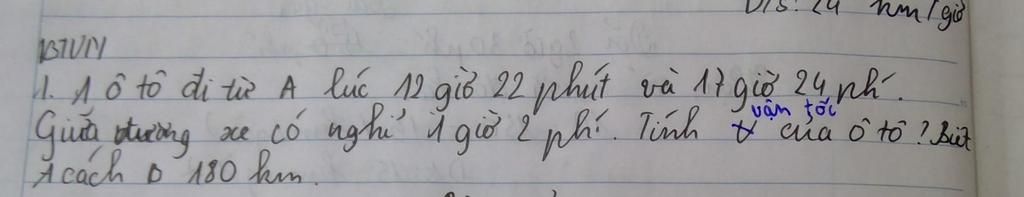 Đ/S: 24 km/giờ
BTVN
1. 1 ô tô đi từ A lúc 12 giờ 22 phút và 17 giờ 24 ph.
vận tốc
Giữa đường xe có nghỉ 1 giờ 2 ph. Tính của ô tô? Biết
A cách B 180 km.